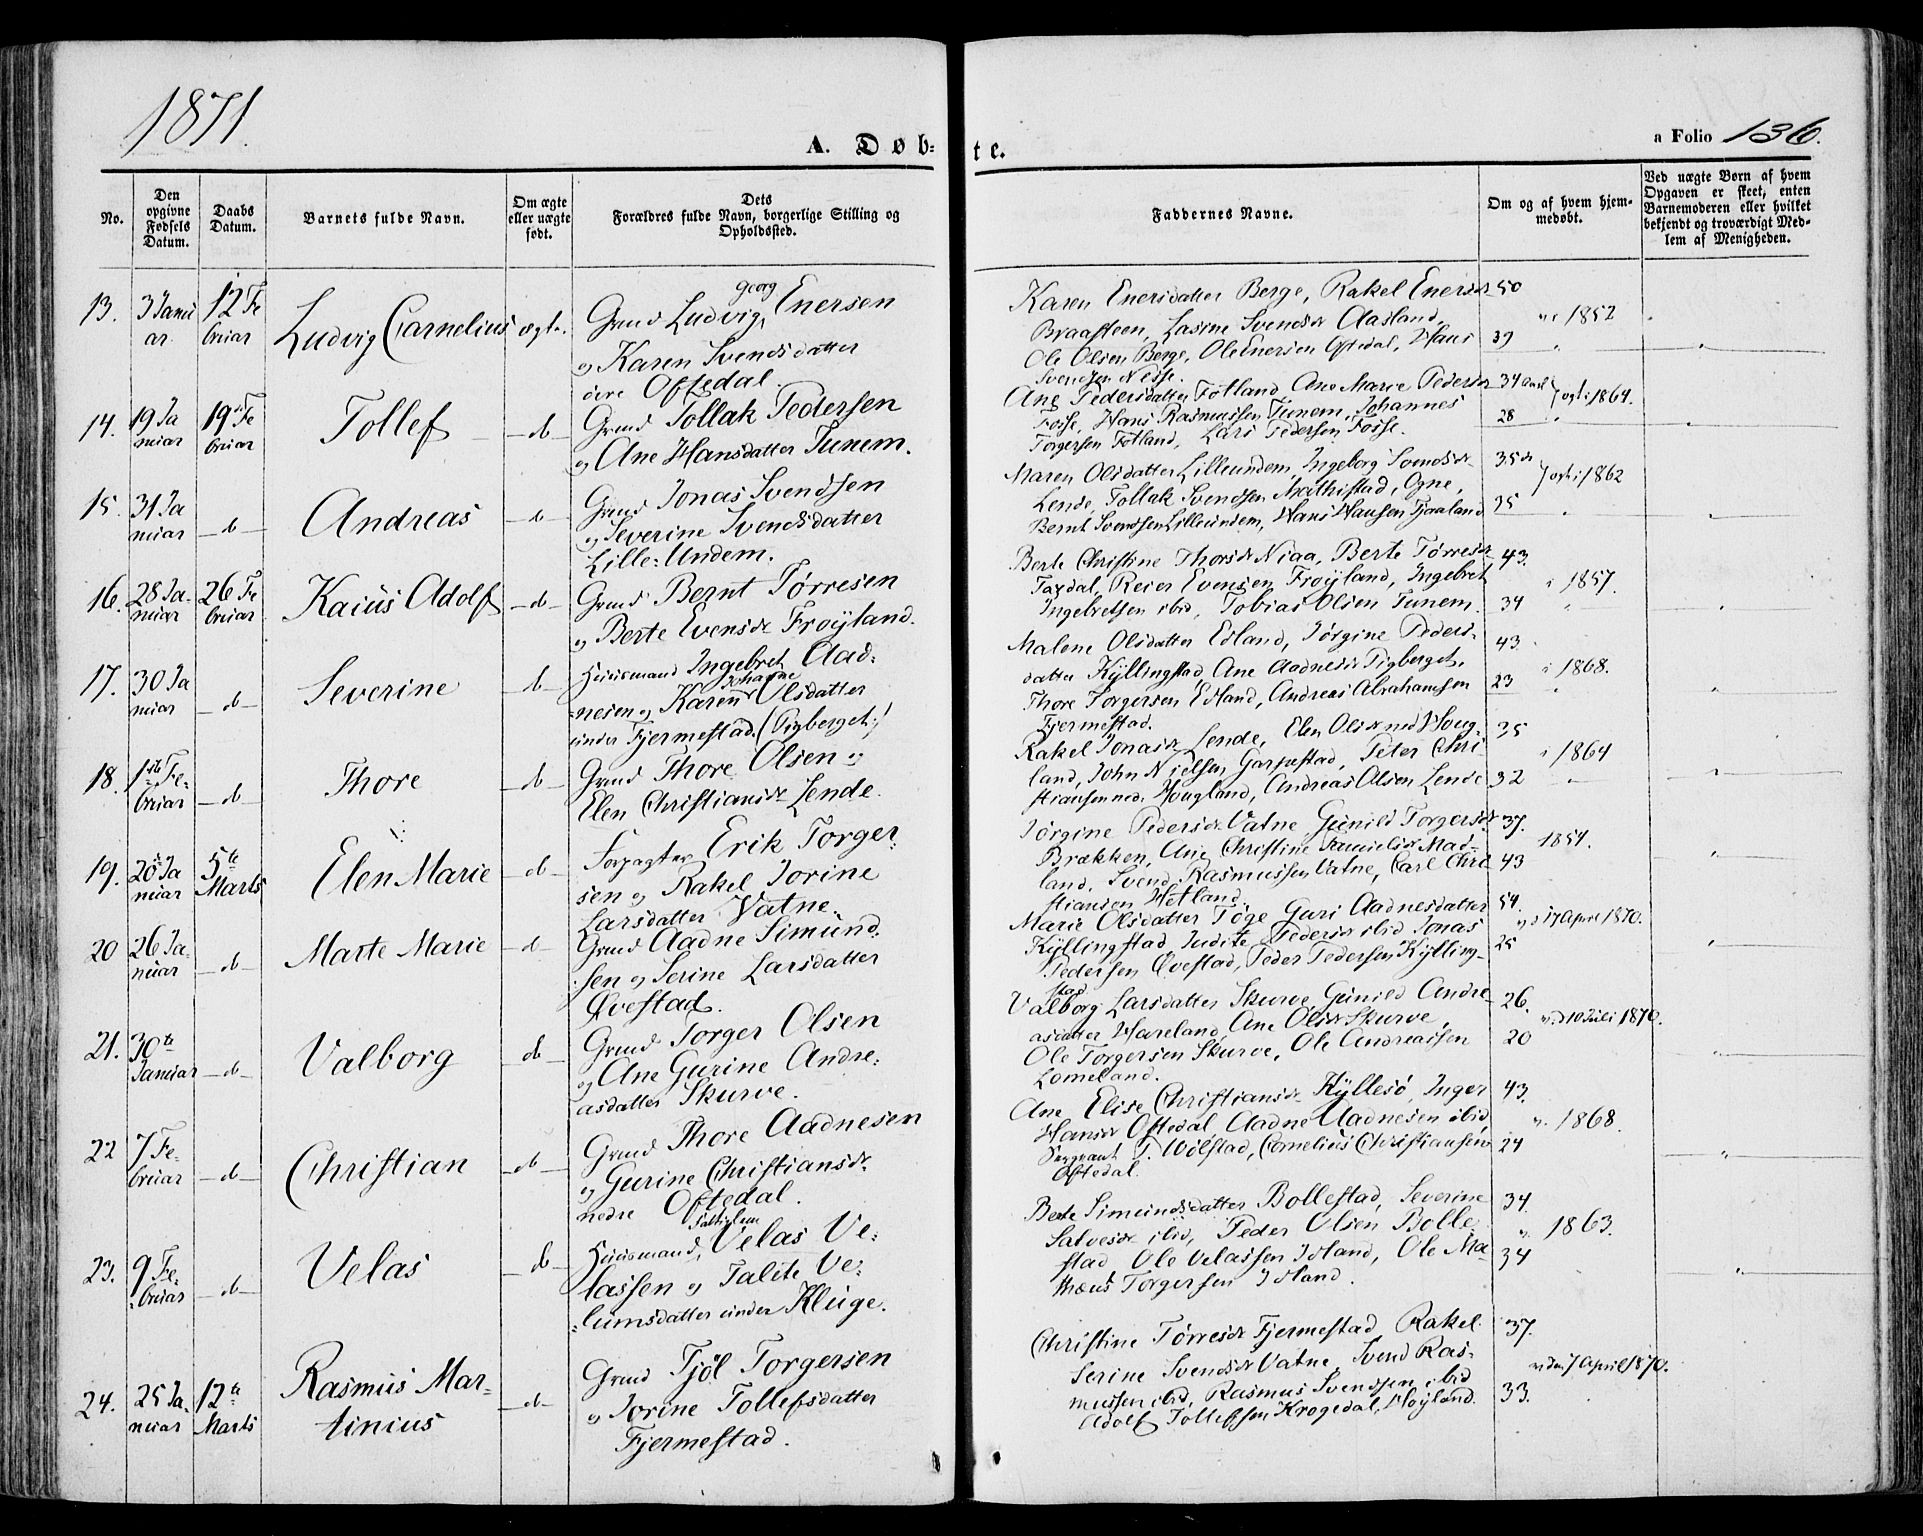 1871.
A. Døb-
te.
a Folio 136.
No.
Den opgivne Fødsels Datum.
Daabs Datum.
Barnets fulde Navn.
Om ægte eller uægte født.
Dets Forældres fulde Navn, borgerlige Stilling og Opholdssted.
Faddernes Navne.
Om og af hvem hjemmedøbt.
Ved uægte Børn af hvem Opgaven er skeet, enten Barnemoderen eller hvilket bekjendt og troværdigt Medlem af Menigheden.
13. 3 Januar 12 Februar Ludvig Cornelius ægte.
Grmd Ludvig Georg Enersen
og Karen Svendsdatter
Oftedal.
Karen Enersdatter Berge, Rakel Enersdr 50
Braasteen, Svendsdr Aasland, 1852
Ole Olsen Berge, Ole Enersen Oftedal, Hans 39
Svendsen Nesse.
14. 19 Januar 19 Februar Tollef do
Grmd Tollak Pedersen
og Ane Hansdatter Tunem.
Ane Pedersdatter Fotland, Ane Marie Pedersdr 34
Fosse, Hans Rasmussen Tunem, Johannes 1864.
Torgersen Fotland, Lars Pedersen Fosse. 28
15. 31 Januar do Andreas do
Grmd Jonas Svendsen
og Severine Svendsdatter
Lille-Undem.
Maren Olsdatter Lilleundem, Ingeborg Svendsdr 35
Lende, Tollak Svendsen Mathistad, Ogne, 1862
Bernt Svendsen Lilleundem, Hans Hansen Tjaaland 35
16. 28 Januar 26 Februar Kaius Adolf do
Grmd Bernt Tørresen
og Berte Evensdr Frøyland.
Berte Christine Thorsdr Niaa, Berte Tørresdr 43.
Taxdal, Reier Evensen Frøyland, Ingebret 1857.
Ingebretsen ibid, Tobias Olsen Tunem. 34
17. 30 Januar do Severine do
Huusmand Ingebret Aad-
nesen og Karen Johanne Olsdatter
under Fjermestad. (Pigberget)
Malene Olsdatter Edland, Jørgine Peders- 43
datter Kyllingstad, Ane Aadnesdr Pigberget, 1868.
Thore Torgersen Edland, Andreas Abrahamsen 23
Fjermestad.
18. 1ste Februar do Thore do
Grmd Thore Olsen og
Elen Christiansdr Lende.
Rakel Jonasdr Lende, Elen Olsdr ned Houg- 35
land, John Nielsen Garpestad, Peter Chri- 1864
stiansen ned. Hougland, Andreas Olsen Lende 32
19. 20 Januar 5te Marts Elen Marie do
Forpagter Erik Torger-
sen og Rakel Jorine
Larsdatter Vatne.
Jørgine Pedersdr Vatne Gunild Torgersdr 37.
Brækken, Ane Christine Samuelsdr Mad- 1857.
land, Svend Rasmussen Vatne, Carl Chri- 43
stiansen Hetland.
20 26 Januar do Marte Marie do
Grmd Aadne Simund-
sen og Serine Larsdatter
Qvestad.
Marie Olsdatter Tøge Guri Aadnesdatter 54.
Kyllingstad, Judite Pedersdr ibid Jonas 17 April 1870.
Pedersen Qvestad, Peder Pedersen Kylling- 25
stad
21. 30te Januar do Valborg do
Grmd Torger Olsen
og Ane Gurine Andre-
asdatter Skurve.
Valborg Larsdatter Skurve, Gunild Andre- 26.
asdatter Haveland, Ane Olsdr Skurve, 10 Juli 1870.
Ole Torgersen Skurve, Ole Andreassen 20
Lomeland.
22 7 Februar do Christian do
Grmd Thore Aadnesen
og Gurine Christiansdr
nedre Oftedal.
Ane Elise Christiansdr Kyllesø, Inger 43.
Hansdr Oftedal, Aadne Aadnesen ibid, 1868.
Sergeant T. Wølstad, Cornelius Christiansen 24
Oftedal.
23. 9 Februar do Velas do
Huusmand, Velas Ve-
lassen og Talite Ve-
lumsdatter under Kluge.
Berte Simundsdatter Bollestad, Severine 34.
Salvesdr ibid, Peder Olsen Bolle- 1863.
stad Ole Velassen Idland, Ole Ma- 34
thæus Torgersen Idland.
24. 25 Januar 12te Marts Rasmus Mar-
tinius do
Grmd Tjøl Torgersen
og Jorine Tollefsdatter
Fjermestad.
Christine Tørresdr Fjermestad Rakel 37.
Serine Svendsdr Vatne, Svend Ras- 7 April 1870.
mussen ibid, Rasmus Svendsen ibid 33.
Adolf Tollefsen Krogedal, Høyland.